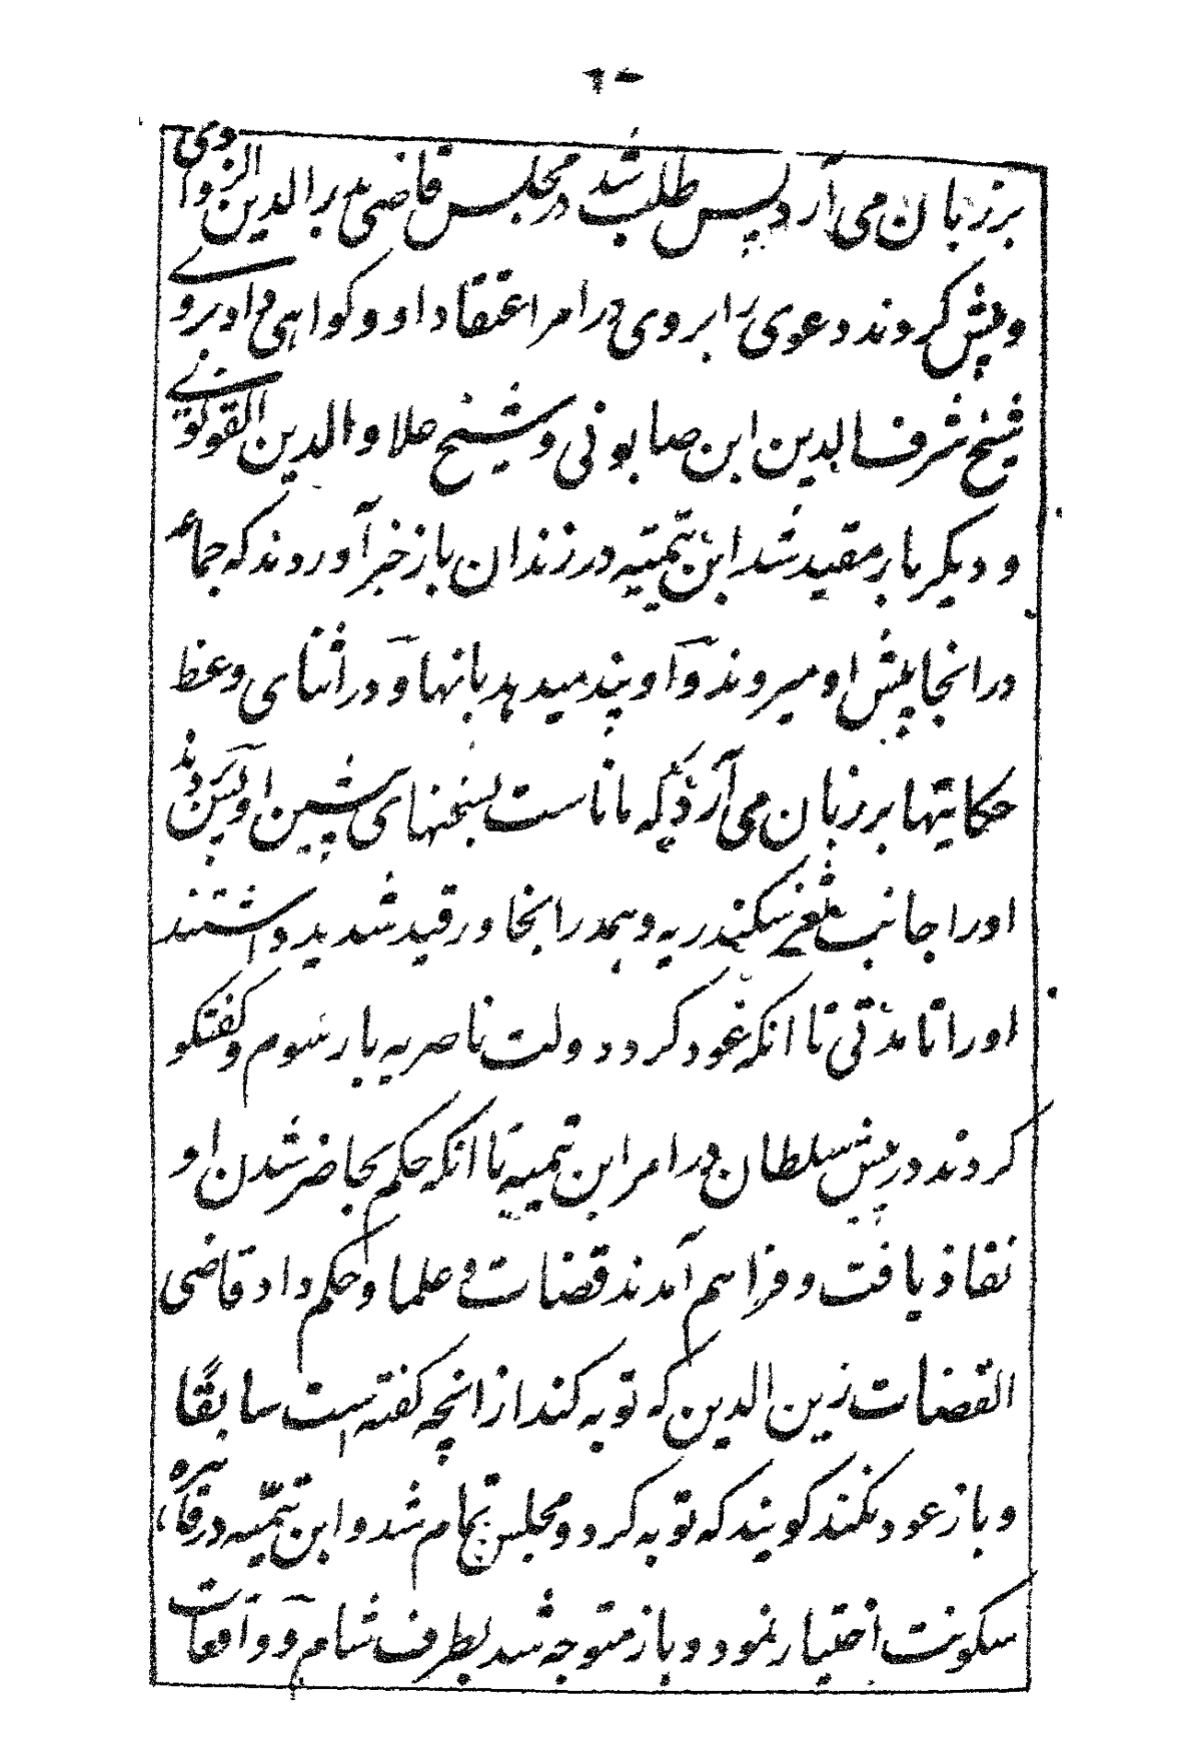 بر زبان می آرد پس طلب شد در مجلس قاضی بدر الدین الزواوی
و پیش کروند دعوی را بروی در امر اعتقاد او و کواهی داد بروے
شیخ شرف الدین ابن صابونی و شیخ علاو الدین القونوی
و دیکر بار مقید شد ابن تیمیّه در زندان باز خبر آوردند که جماعه
در انجا پیش او میروند و او پند میدهد بانها و در اثنای وعظ
حکایتها بر زبان می آرد که مانا ست بسخنهای پیشین او
اورا جانب ثغر سکندریه و همدرانجا در قید شدید داشتند
اورا تا مدتی تا انکه عود کرد دولت ناصریه بار سوم و کفتکو
کردند در پیش سلطان در امر ابن تیمیه تا انکه حکم بحاضر شدن او
نفاذ یافت و فراهم آمدند قضات و علما و حکم داد قاضی
القضات زین الدین که توبه کند از انچه کفته است سابقًا
و باز عود نکند کویند که توبه کرد و مجلس تمام شد و ابن تیمّیه در قاهره
سکونت اختیار نمود و باز متوجه شد بطرف شام و واقعات